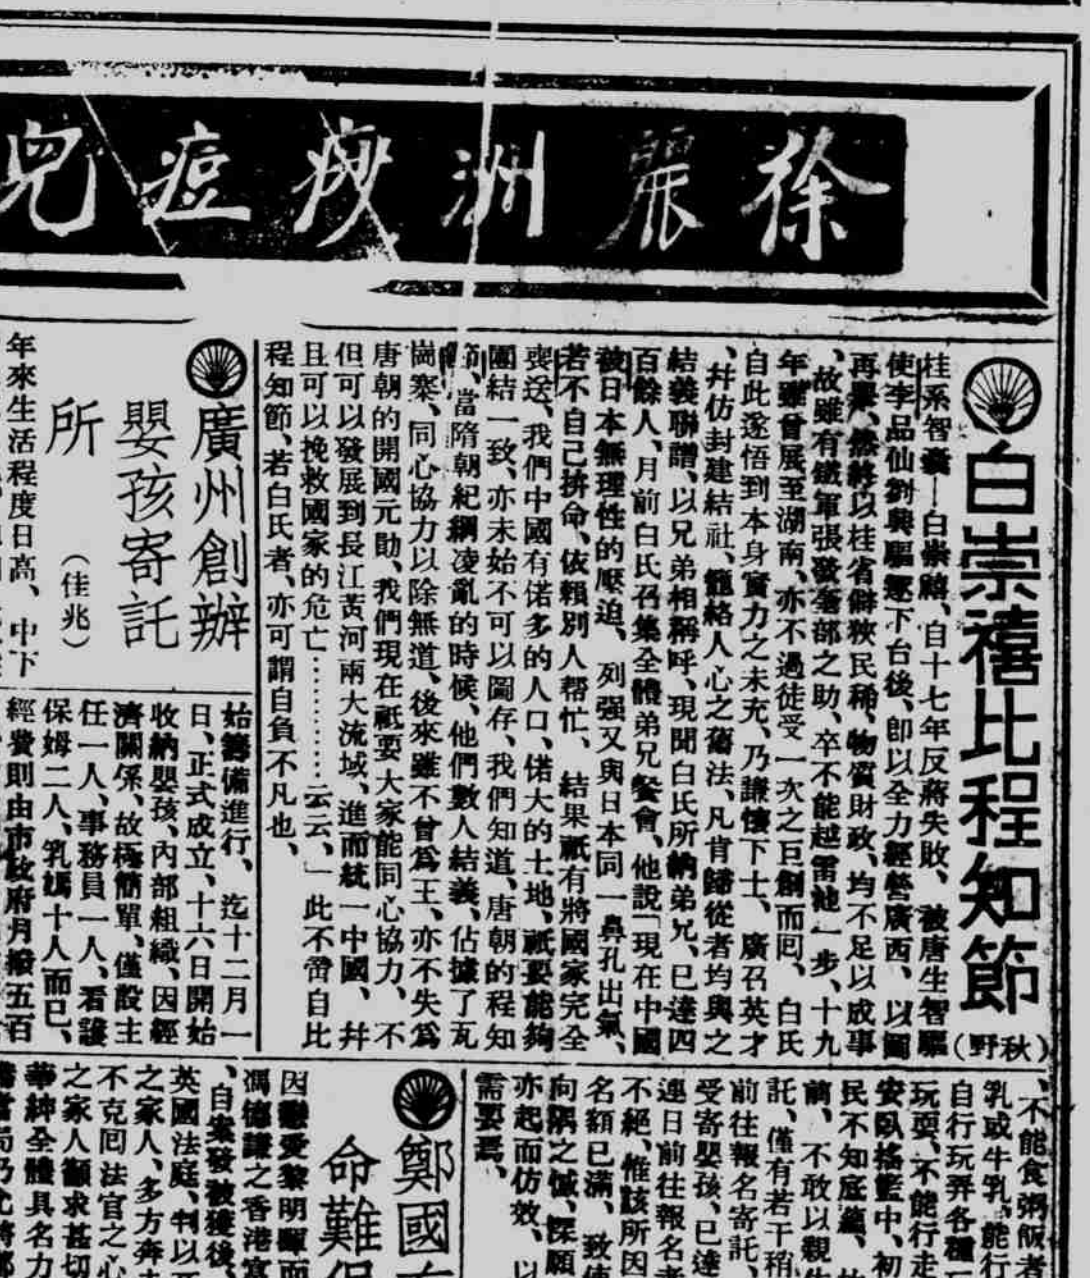 徐麗洲痧痘兒
白崇禧比程知節
(秋野)
桂系智囊—白崇禧、自十七年反蔣失敗、被唐生智驅
使李品仙劉興驅逐下台後、卽以全力經營廣西、以圖
再舉、然終以桂省僻狹民稀、物質財政、均不足以成事
、故雖有鐵軍張發奎部之助、卒不能越雷池一步、十九
年雖曾展至湖南、亦不過徒受一次之巨創而囘、白氏
自此遂悟到本身實力之未充、乃謙懷下士、廣召英才
、幷仿封建結社、籠絡人心之舊法、凡肯歸從者均與之
結義聯譜、以兄弟相稱呼、現聞白氏所納弟兄、已達四
百餘人、月前白氏召集全體弟兄餐會、他說「現在中國
被日本無理性的壓迫、列强又與日本同一鼻孔出氣、
若不自己拚命、依賴別人帮忙、結果祇有將國家完全
喪送、我們中國有偌多的人口、偌大的土地、祇要能夠
團結一致、亦未始不可以圖存、我們知道、唐朝的程知
節、當隋朝紀綱凌亂的時候、他們數人結義、佔據了瓦
崗寨、同心協力以除無道、後來雖不曾爲王、亦不失爲
唐朝的開國元勛、我們現在祇要大家能同心協力、不
但可以發展到長江黃河兩大流域、進而統一中國、幷
且可以挽救國家的危亡…………云云、」此不啻自比
程知節、若白氏者、亦可謂自負不凡也、
廣州創辦
嬰孩寄託
所
(佳兆)
年來生活程度日高、中下
始籌備進行、迄十二月一
日、正式成立、十六日開始
收納嬰孩、內部組織、因經
濟關係、故極簡單、僅設主
任一人、事務員一人、看護
保姆二人、乳媽十人而已、
經費則由市政府月撥五百
、不能食粥飯者
乳或牛乳、能行
自行玩弄各種
玩耍、不能行走
安臥搖籃中、初
民不知底蘊、
前、不敢以觀
託、僅有若干稍
前往報名寄託、
受寄嬰孩、已達
連日前往報名者
不絕、惟該所因
名額已滿、致使
向隅之憾、深願
亦起而仿效、以
需要焉、
鄭國
命難保
因戀愛黎明暉而
馮德謙之香港富
、自案發被獲後、
英國法庭、判以死
之家人、多方奔走
不克囘法官之心
之家人顧求甚切
華紳全體具名力